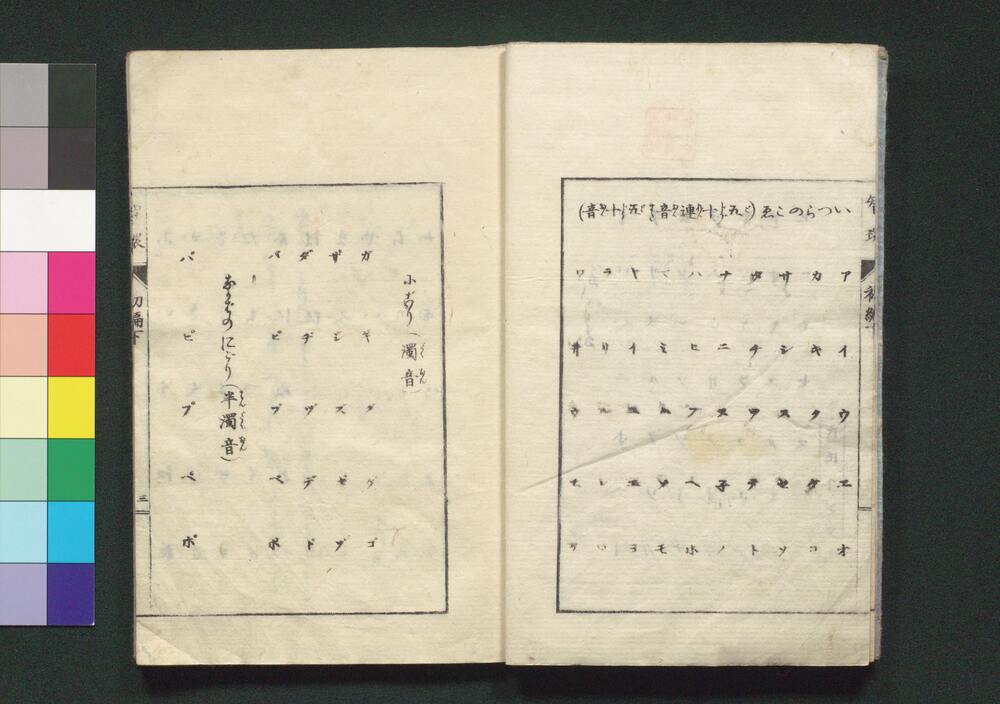 智環
初編
いつらのこゑ(五十連音 五十音)
ア イ ウ エ オ
カ キ ク ケ コ
サ シ ス セ ソ
タ チ ツ テ ト
ナ ニ ヌ 子 ノ
ハ ヒ フ ヘ ホ
マ ミ ム メ モ
ヤ イ ユ エ ヨ
ラ リ ル レ ロ
ワ 井 ウ ヱ ヲ
にごり(濁音)
ガ ギ グ ゲ ゴ
ザ ジ ズ ゼ ゾ
ダ ヂ ヅ デ ド
バ ビ ブ ベ ボ
なかばのにごり(半濁音)
パ ピ プ ペ ポ
初編下
三